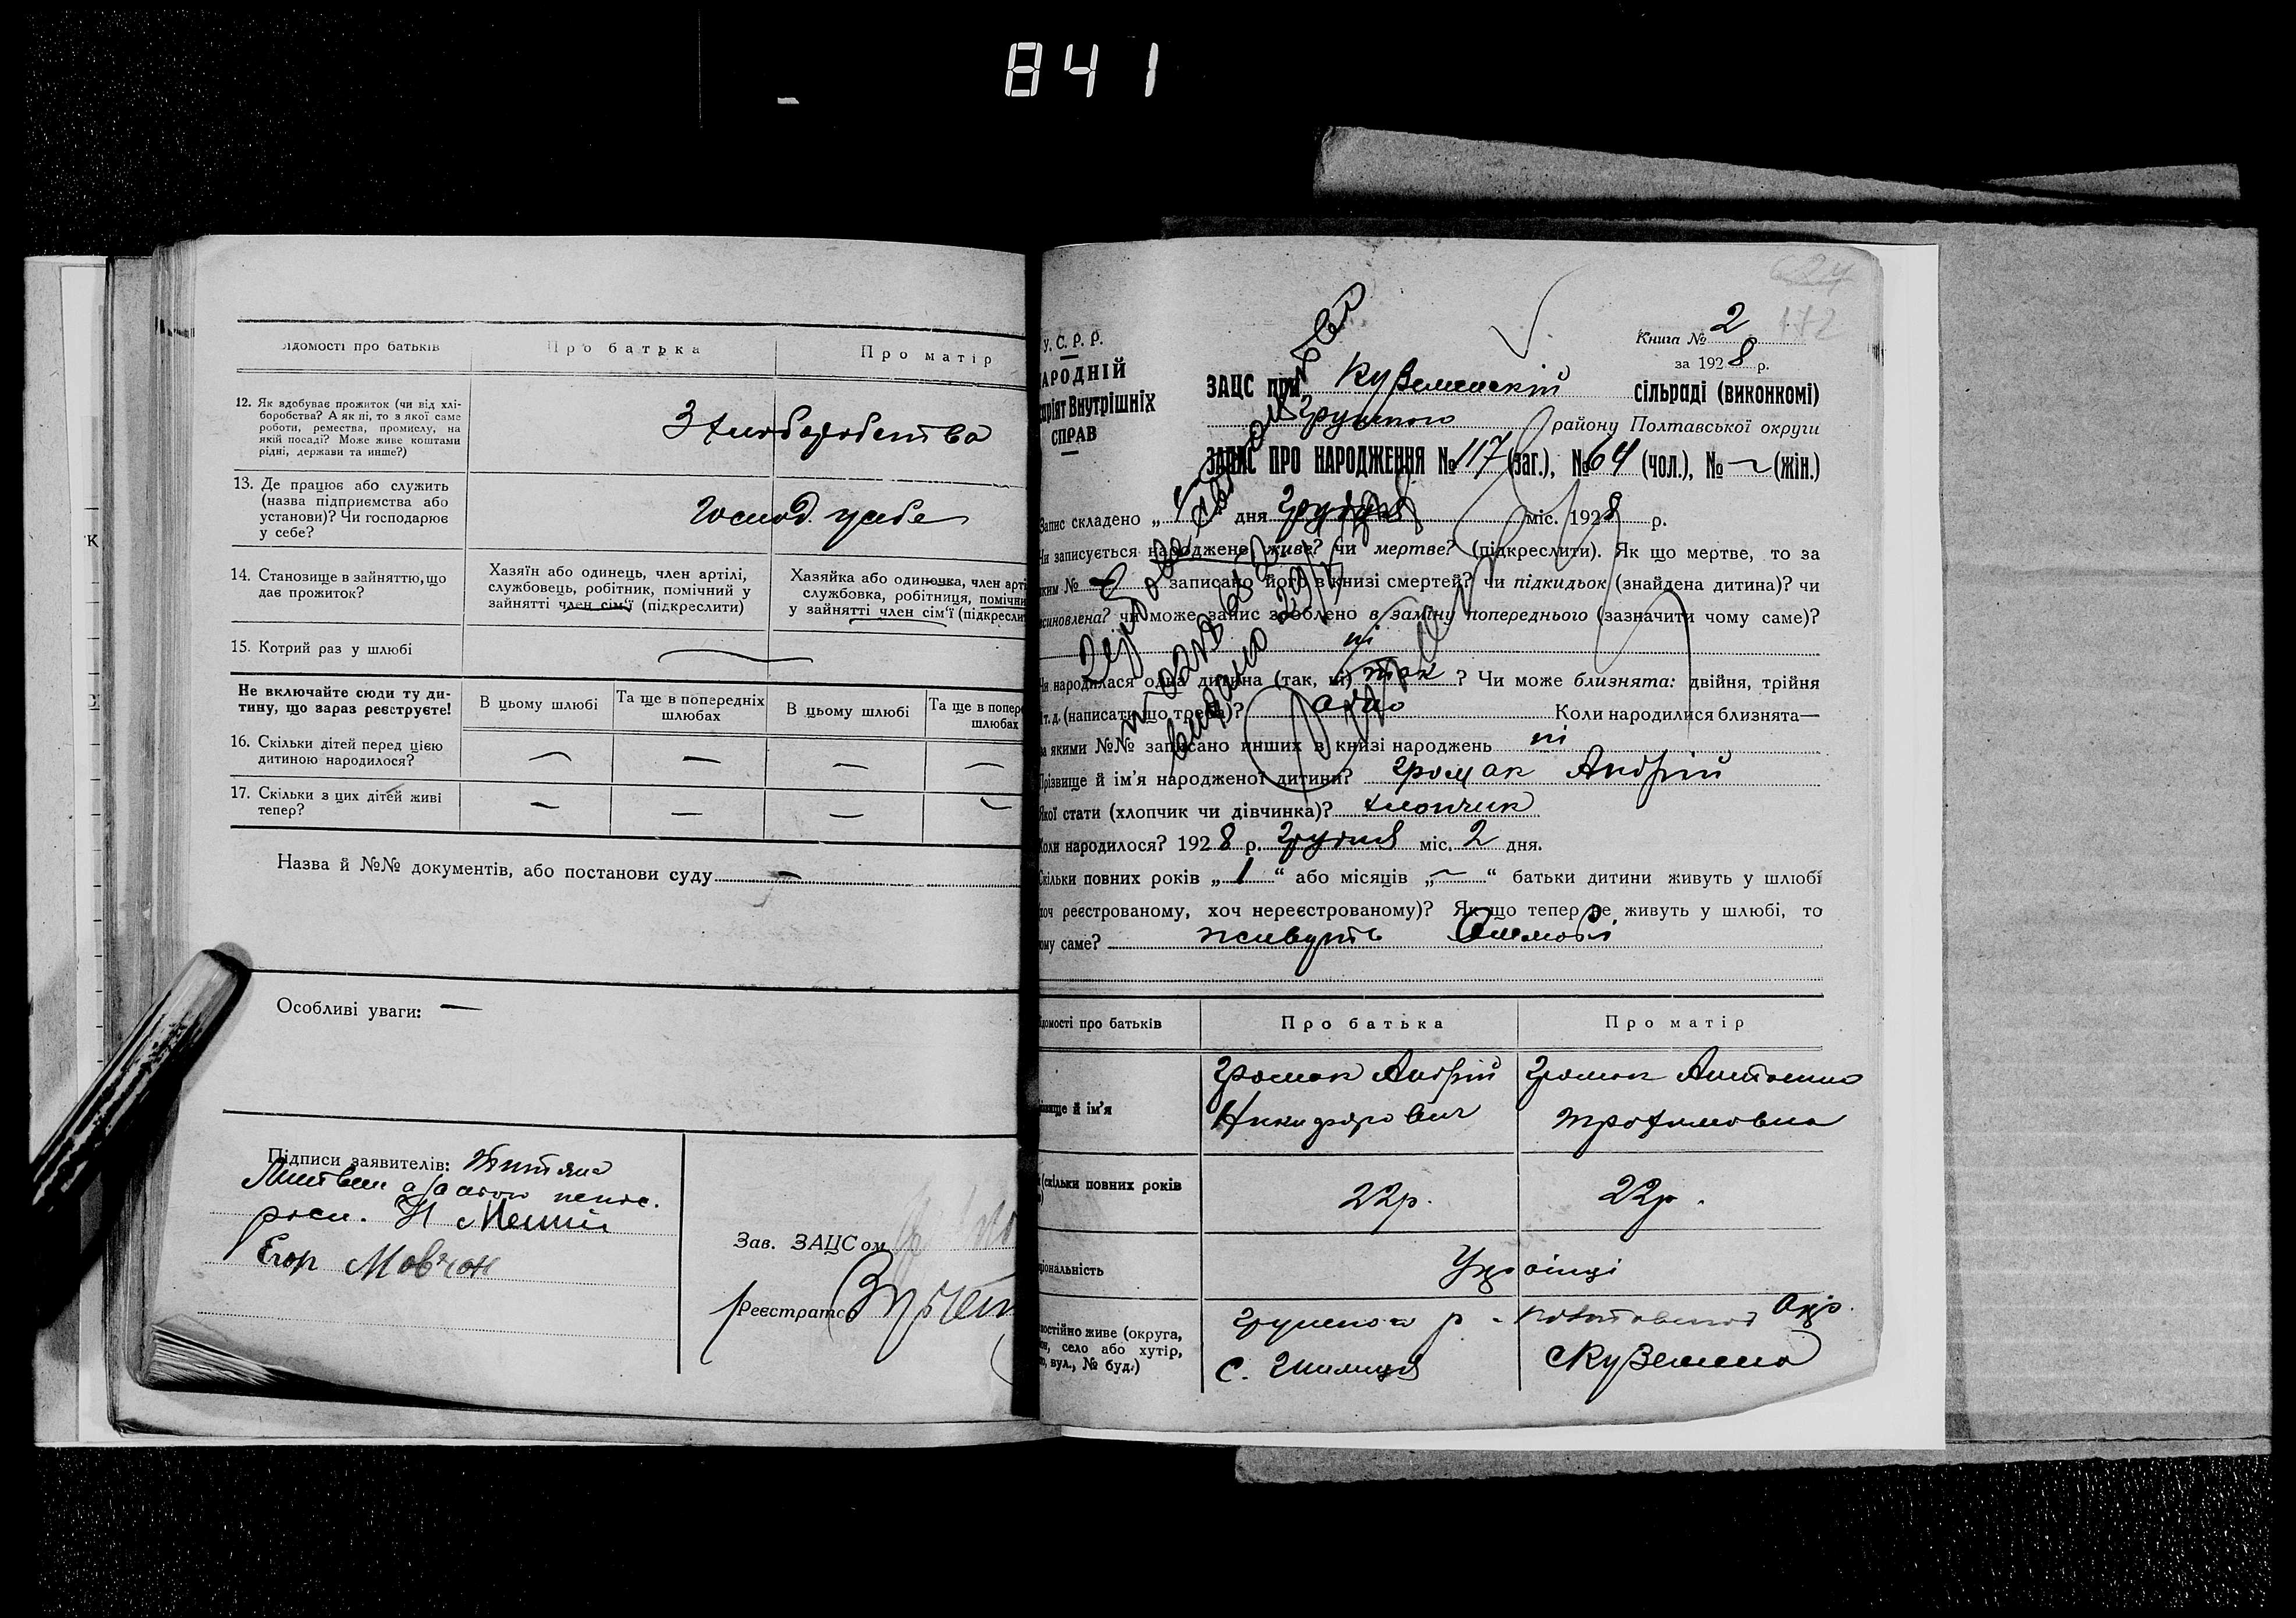 841
ідомості про батьків
Про батька
Про матір
12. Як здобуває прожиток (чи від хлі-
боробства? А як ні, то з якої саме
роботи, ремества, промислу, на
якій посаді? Може живе коштами
рідні, держави та инше?)
З хлоборобства
13. Де працює або служить
(назва підприємства або
установи)? Чи господарює
у себе?
Господ. у себе
14. Становище в зайняттю, що
дає прожиток?
Хазяїн або одинець, член артілі,
службовець, робітник, помічний у
зайнятті член сім'ї (підкреслити)
Хазяйка або одиночка, член арті
службовка, робітниця, помічн
у зайнятті член сім'ї (підкресли
15. Котрий раз у шлюбі
Не включайте сюди ту ди-
тину, що зараз реєструєте!
В цьому шлюбі
Та ще в попередніх
шлюбах
В цьому шлюбі
Та ще в попер
шлюбах
16. Скільки дітей перед цією
дитиною народилося?
— — — —
17. Скільки з цих дітей живі
тепер?
— — — —
Назва й №№ документів, або постанови суду —
Особливі уваги: —
Підписи заявителів:
Егор Мовчан
Зав. ЗАЦСом
Реєстратор
624
172
Книга № 2
за 1928 р.
У. С. Р. Р.
АРОДНІЙ
аріят Внутрішніх
СПРАВ
ЗАЦС при Куземенскій сільраді (виконкомі)
Грунского району Полтавської округи
ЗАПИС ПРО НАРОДЖЕННЯ № 117 (заг.), № 64 (чол.), № ~ (жін.)
Запис складено „4" дня грудня міс. 1928 р.
Чи записується народжене живе? чи мертве? (підкреслити). Як що мертве, то за
яким № записано його в книзі смертей? Чи підкидьок (знайдена дитина)? чи
усиновлена? чи може запис зроблено в заміну попереднього (зазначити чому саме)?
ні
Чи народилася одна дитина (так, ні) так ? Чи може близнята: двійня, трійня
і т. д. (написати що треба)? одно Коли народилися близнята—
за якими №№ записано инших в книзі народжень ні
Прізвище й ім'я народженої дитини? Громак Андрій
Якої стати (хлопчик чи дівчинка)? хлопчик
Коли народилося? 1928 р. грудня міс. 2 дня.
Скільки повних років „1" або місяців „~" батьки дитини живуть у шлюбі
хоч реєстрованому, хоч нереєстрованому)? Як що тепер не живуть у шлюбі, то
чому саме? живуть вшлюбі
домості про батьків
Про батька
Про матір
ізвище й ім'я
Громак Андрій
Никифорович
Громак Антонина
Трохимовна
(скільки повних років
22р.
22р.
ціональність
Українці
постійно живе (округа,
он, село або хутір,
то, вул., № буд.)
Грунского р. Полтавської Окр.
с.
с Куземено